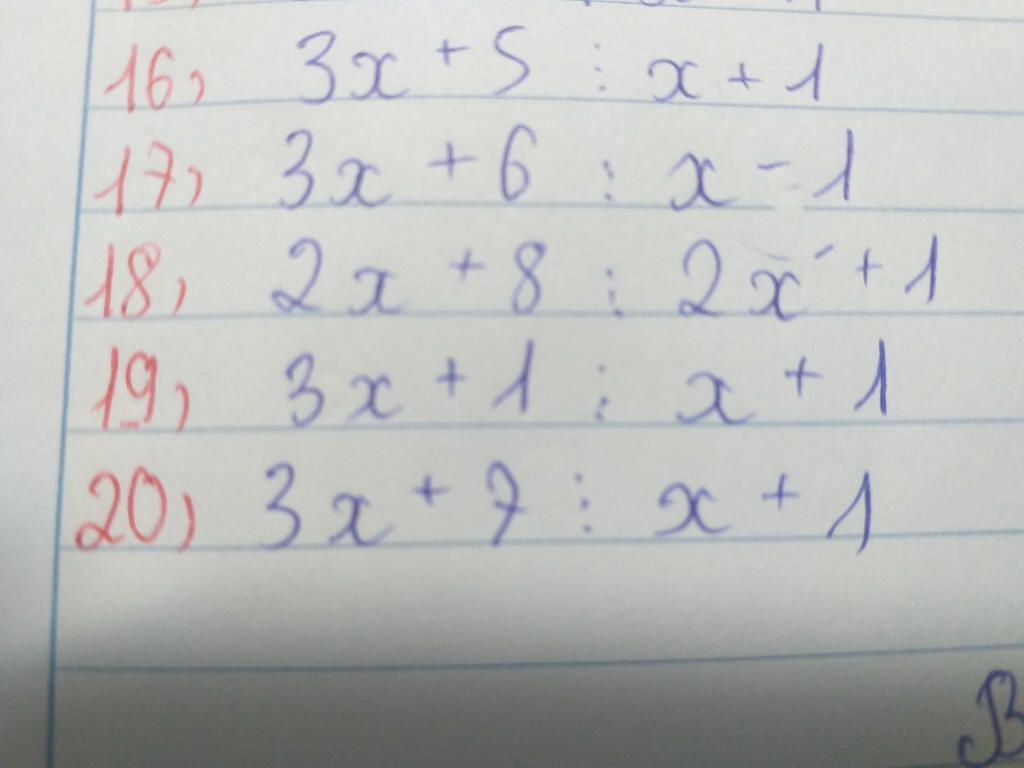 16, 3x + 5 ⋮ x + 1
17, 3x + 6 ⋮ x - 1
18, 2x + 8 ⋮ 2x + 1
19, 3x + 1 ⋮ x + 1
20, 3x + 7 ⋮ x + 1
B